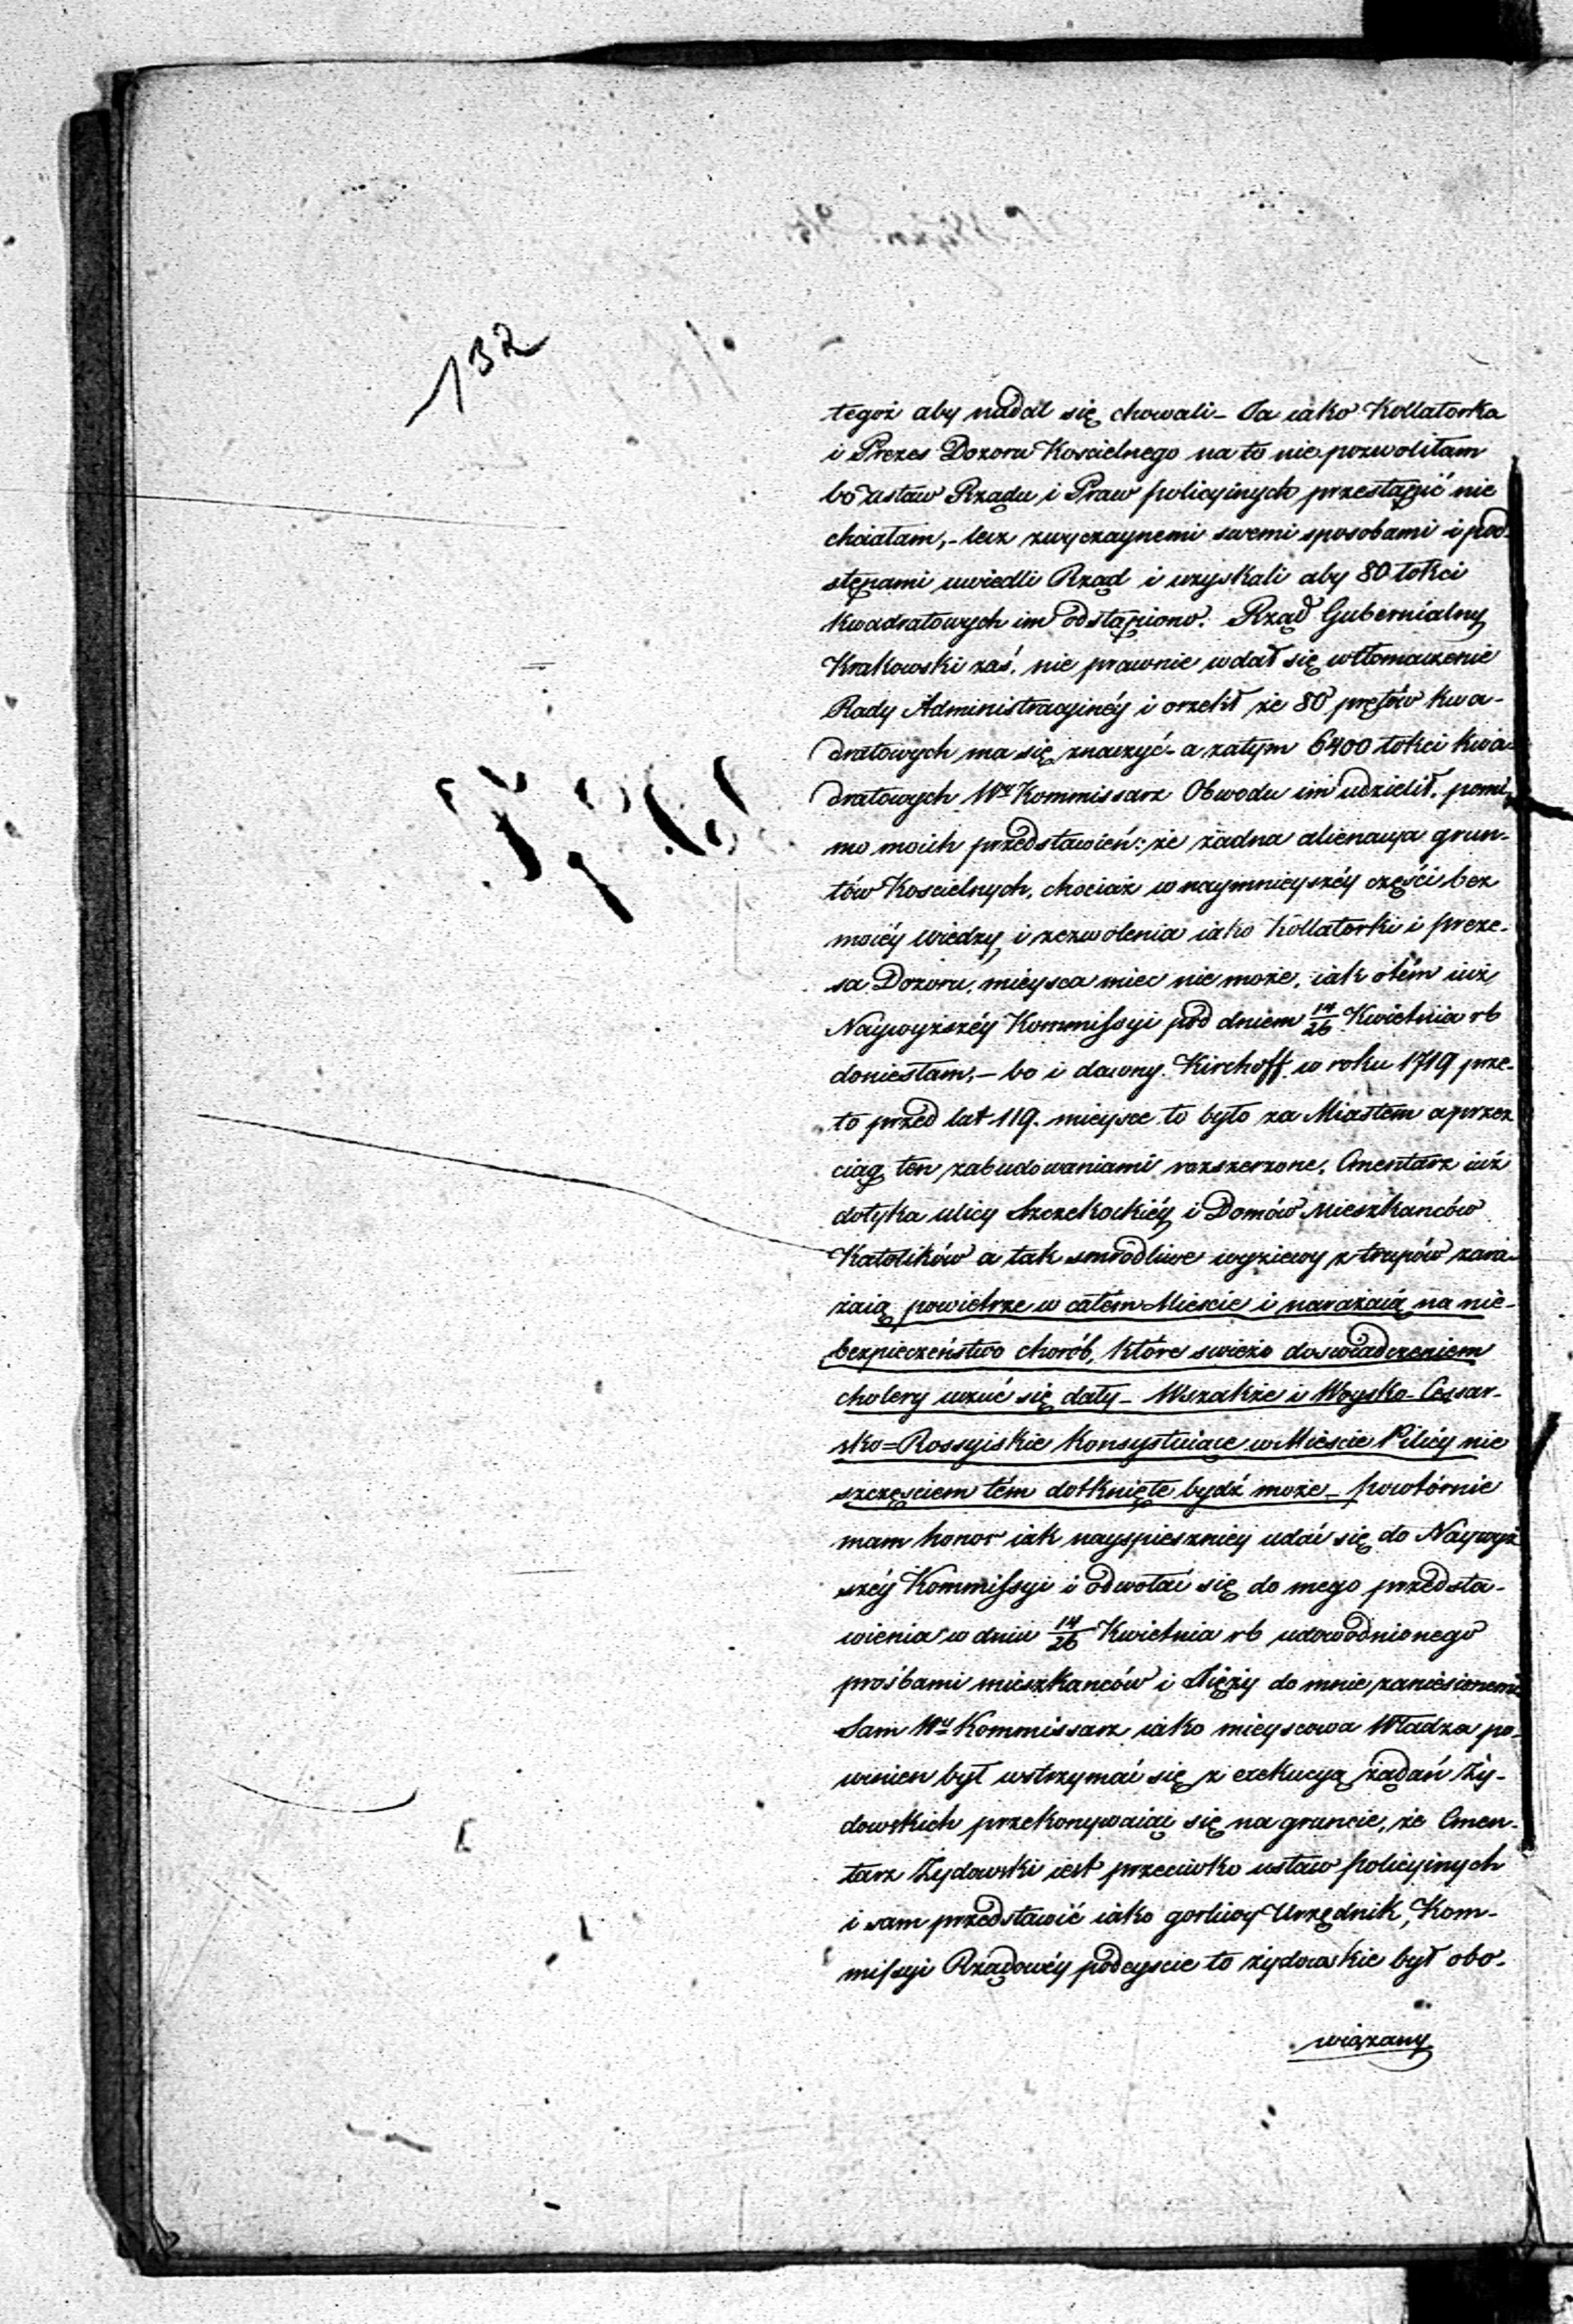 132
tegoż aby nadal się chowali – Ja iako Kollatorka
i Prezes Dozoru Koscielnego na to nie pozwoliłam
bo ustaw Rządu i Praw policyinych przestąpić nie
chciałam, – lecz zwyczaynemi swemi sposobami i pod-
stępami uwiedli Rząd i uzyskali aby 80 łokci
kwadratowych im odstąpiono. Rząd Gubernialny
Krakowski zaś, nie prawnie wdał się w tłomaczenie
Rady Administracyinéy i orzekł że 80 prętów kwa-
dratowych ma się znaczyć – a zatym 6400 łokci kwa-
dratowych Wy Kommissarz Obwodu im udzielił, pomi-
mo moich przedstawień: że żadna alienacya grun-
tów Koscielnych, chociaż w naymnieyszéy części bez
moiéy wiedzy i zezwolenia iako Kollatorki i preze-
sa Dozoru, mieysca miec nie może, iak otém iuż
Naywyższéy Kommissyi pod dniem 14/26 Kwietnia rb
doniesłam, – bo i dawny Kirchoff w roku 1719 prze-
to przed lat 119. mieysce to było za Miastem a przez
ciąg ten zabudowaniami rozszerzone, Cmentarz iuż
dotyka ulicy Szczekockiéy i Domów Mieszkanców
Katolików a tak smrodliwe wyziewy z trupów zara-
żaią powietrze w całém Miescie i narażaią na nie-
bezpieczeństwo chorób, które swieżo doswiadczeniem
cholery uczuć się dały – Wszakże i Woysko Cesar-
sko=Rossyiskie konsystuiące w Miescie Pilicy nie
szczęsciem tém dotknięte bydź może – powtórnie
mam honor iak nayspieszniey udać się do Naywyż-
széy Kommissyi i odwołać się do mego przedsta-
wienia w dniu 14/26 Kwietnia rb udowodnionego
prośbami mieszkanców i Xięży do mnie zaniesionemi
Sam Wy Kommissarz iako mieyscowa Władza po-
winien był wstrzymać się z exekucyą żądań Ży-
dowskich przekonywaiąc się na gruncie, że Cmen-
tarz Żydowski iest przeciwko ustaw policyinych
i sam przedstawić iako gorliwy Urzędnik, Kom-
missyi Rządowéy podeyscie to żydowskie był obo-
wiązany